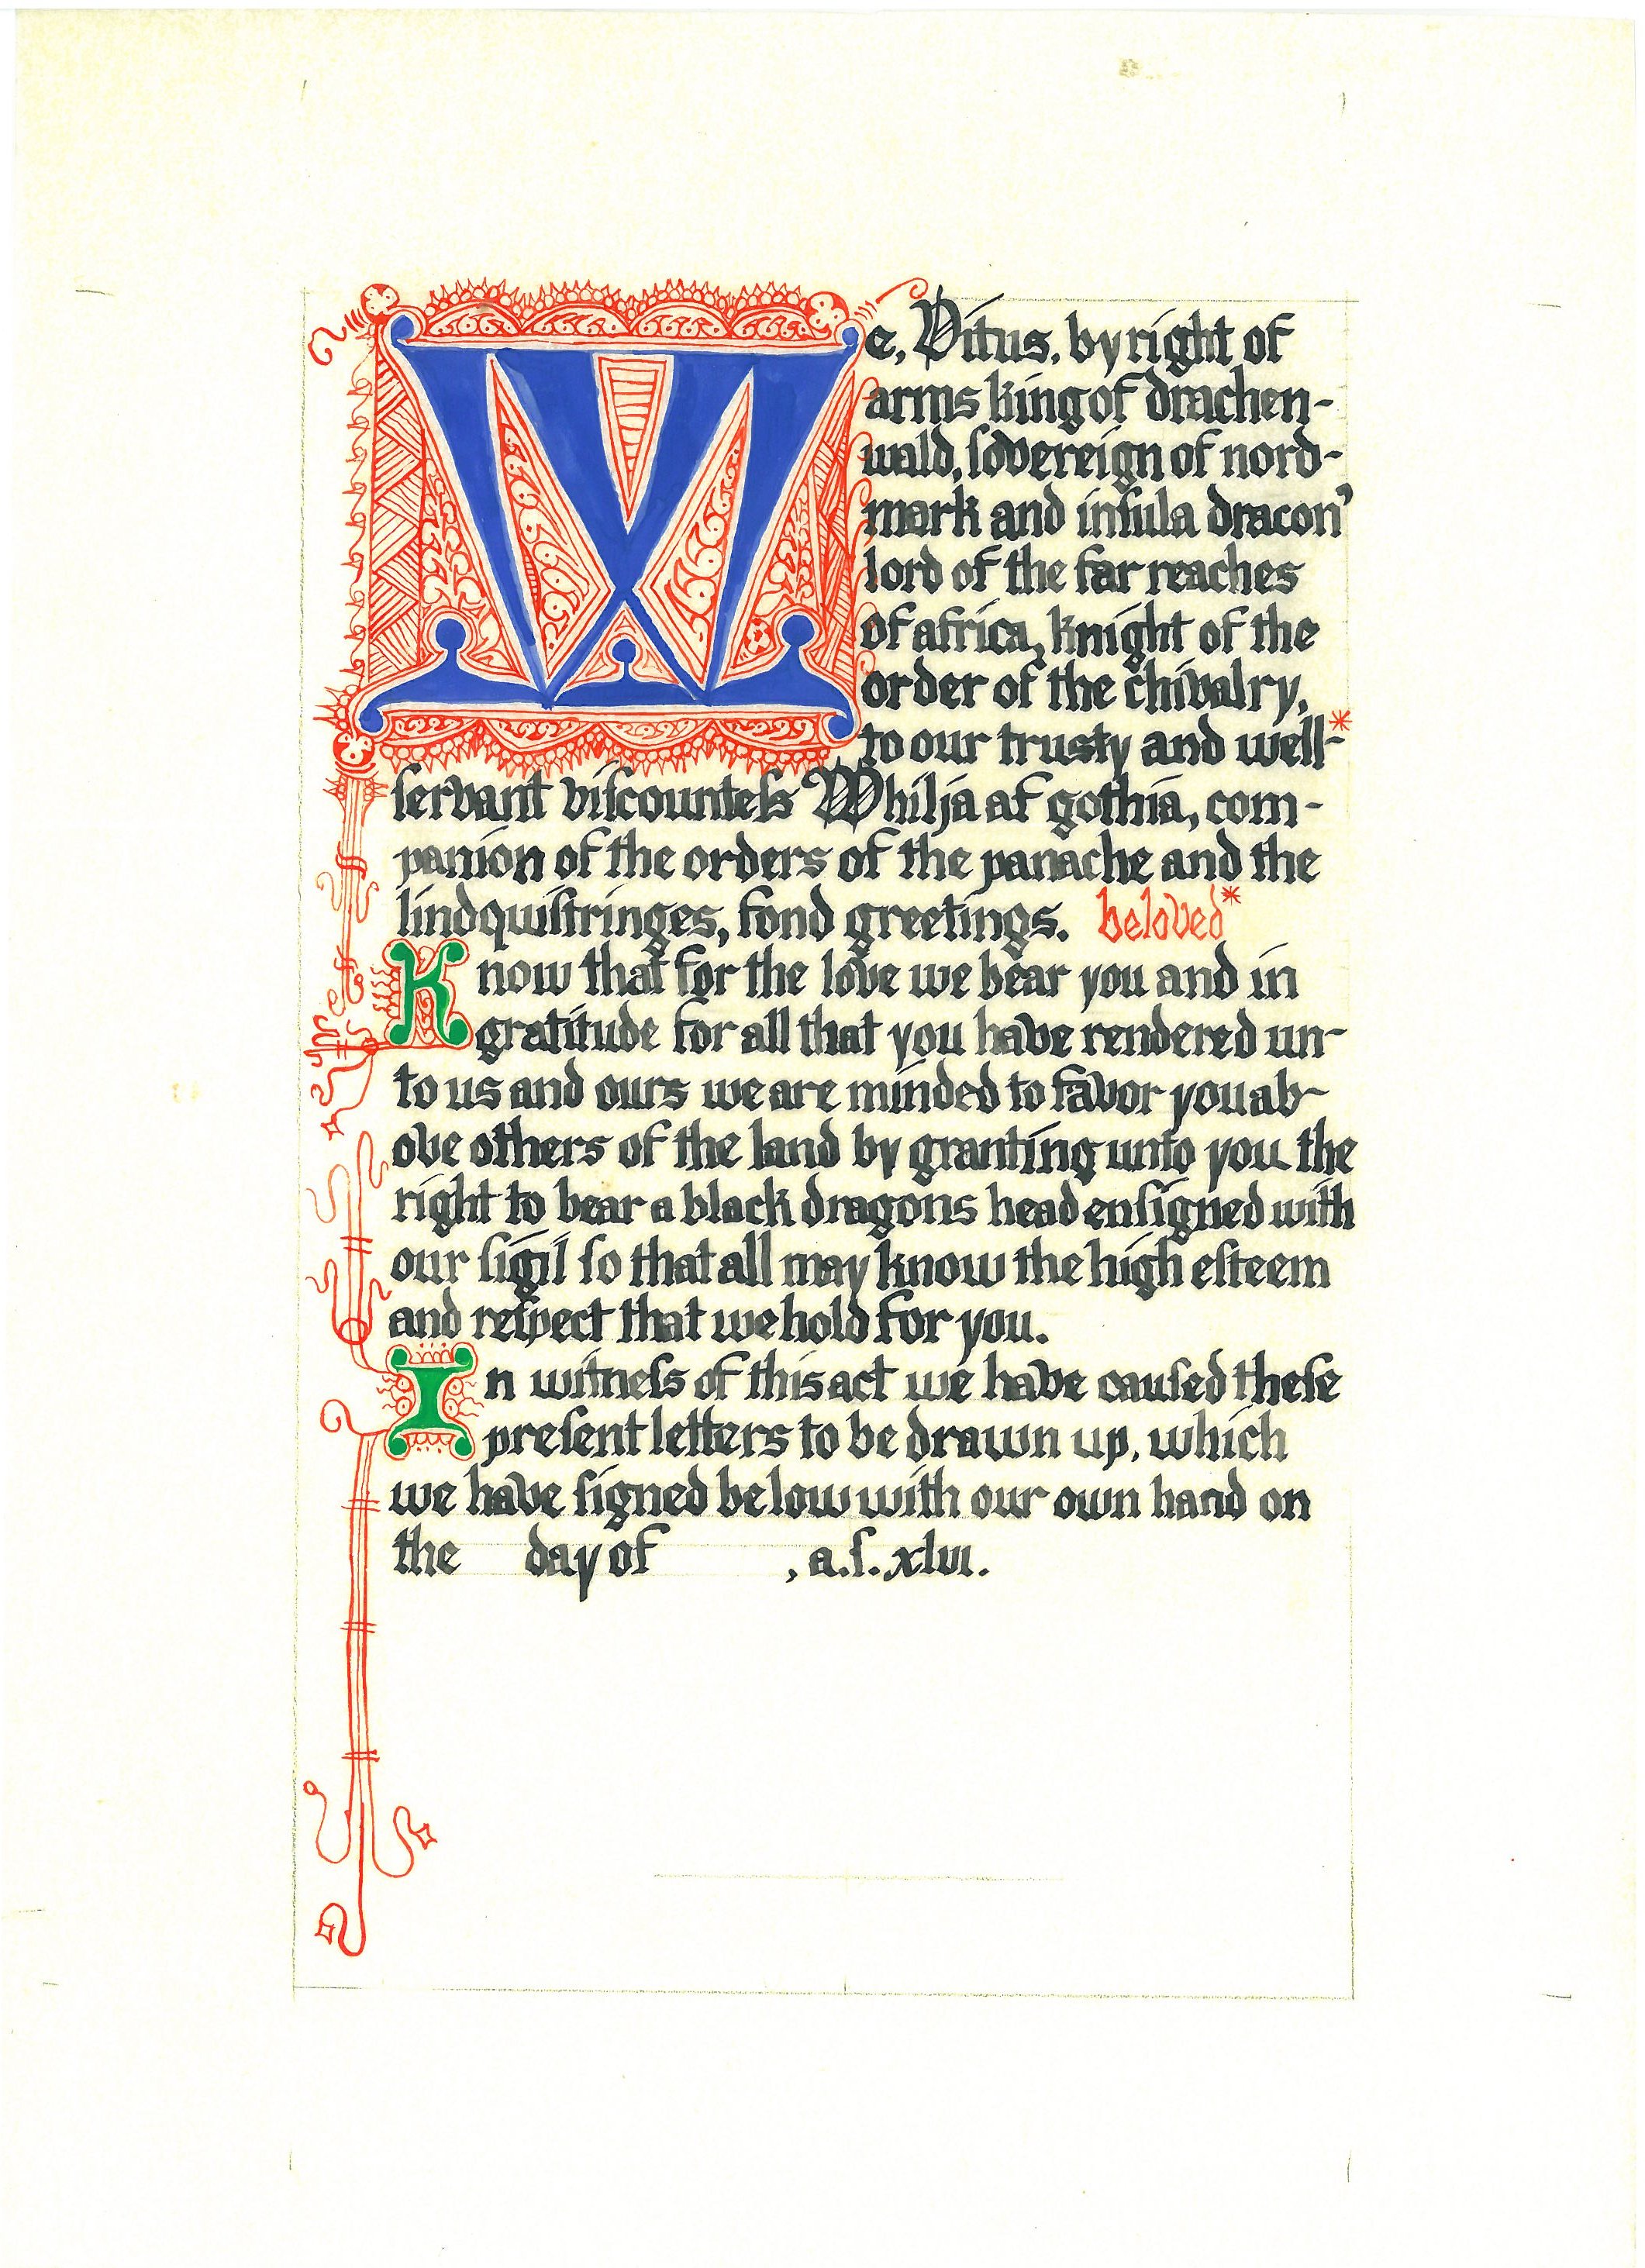 We, Vitus, by right of
arms king of drachen-
wald, ſovereign of nord-
mark and inſula dracon’
lord of the far reaches
of africa, knight of the
order of the chivalry,
to our trusty and well-*
ſervant viſcounteſs Whilja af gothia, com-
panion of the orders of the panache and the
lindquiſtringes, fond greetings. beloved*
Know that for the love we bear you and in
gratitude for all that you have rendered un-
to us and ours we are minded to favor you ab-
ove others of the land by granting unto you the
right to bear a black dragons head enſigned with
our ſigil ſo that all may know the high eſteem
and reſpect that we hold for you.
In witneſs of this act we have cauſed theſe
preſent letters to be drawn up, which
we have ſigned below with our own hand on
the day of , a.ſ. xlvi.